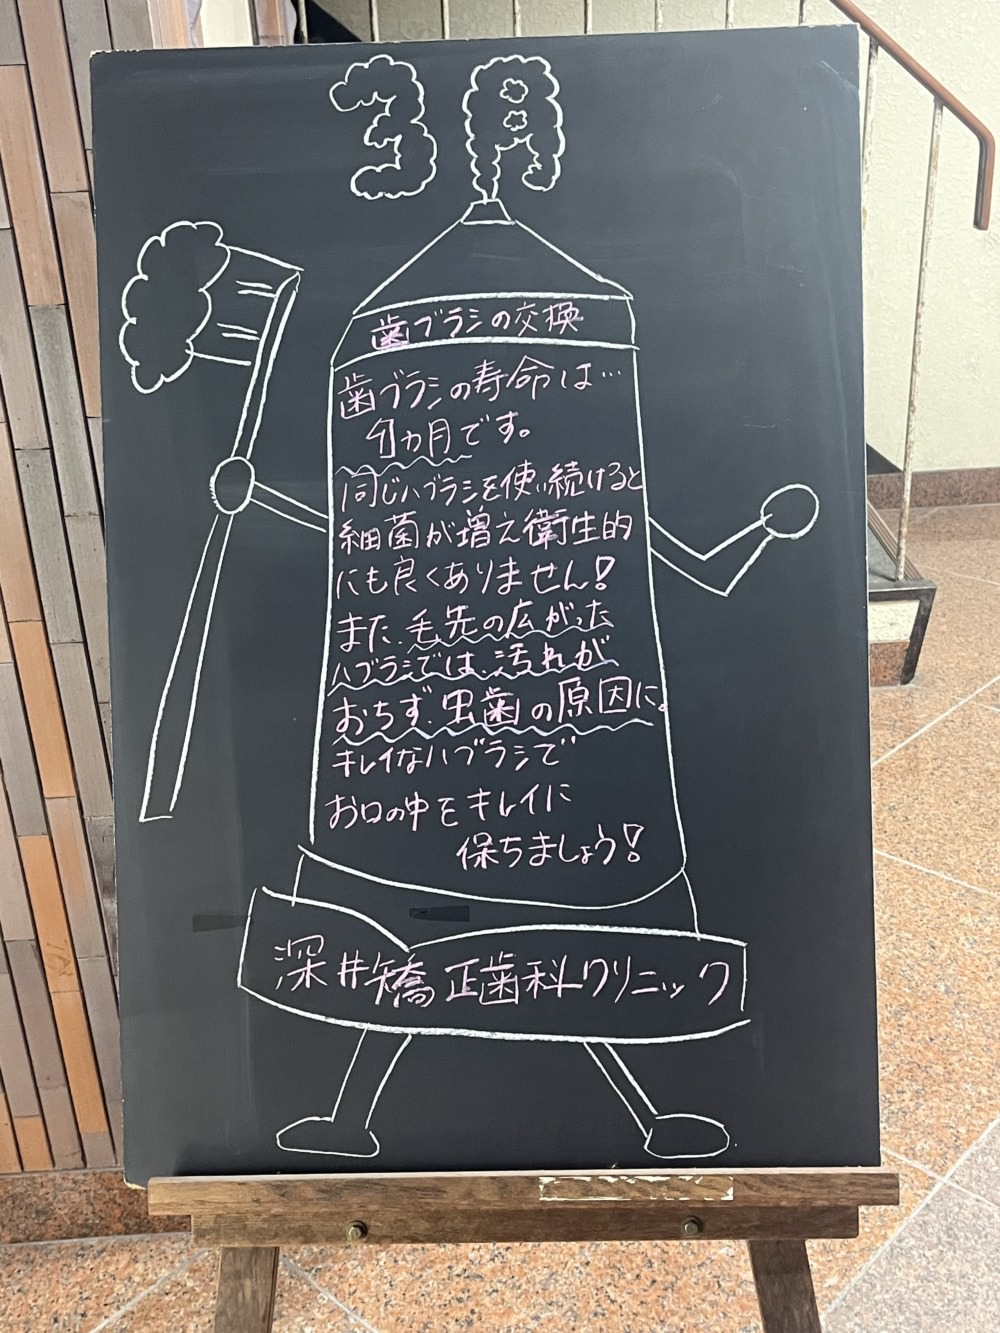 3月
歯ブラシの交換
歯ブラシの寿命は…
1カ月です。
同じハブラシを使い続けると
細菌が増え衛生的
にも良くありません!
また、毛先の広がった
ハブラシでは、汚れが
おちず、虫歯の原因に。
キレイなハブラシで
お口の中をキレイに
保ちましょう!
深井矯正歯科クリニック